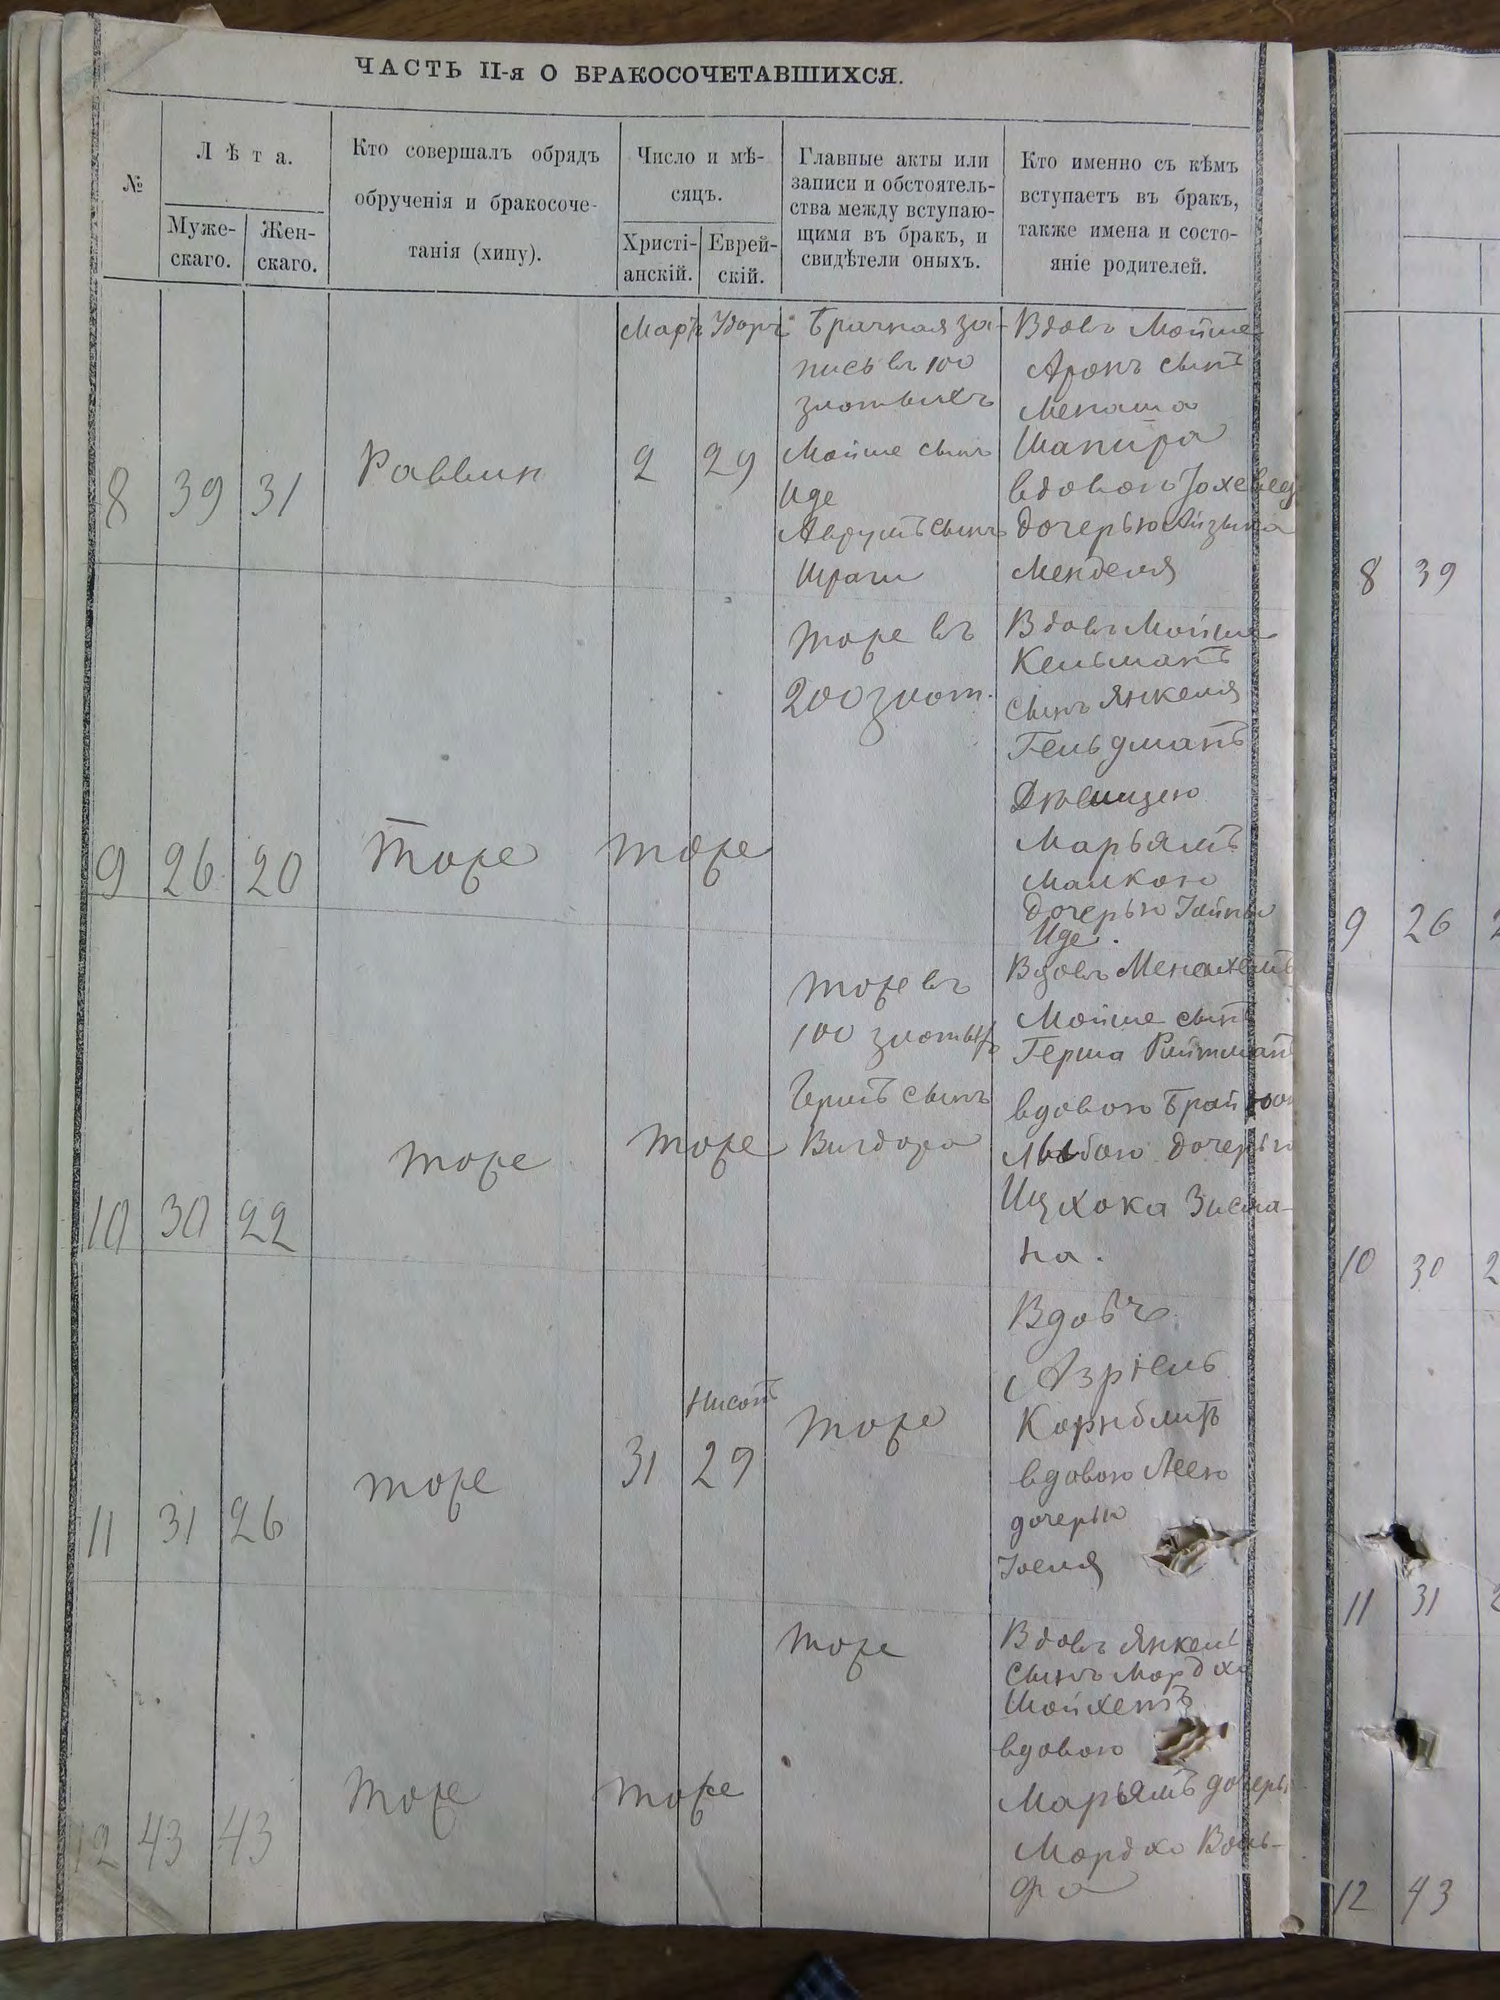 ЧАСТЬ II-я О БРАКОСОЧЕТАВШИХСЯ.
№
Лѣта.
Муже-
скаго.
Жен-
скаго.
Кто совершалъ обрядъ
обрученія и бракосоче-
танія (хипу).
Число и мѣ-
сяцъ.
Христі-
анскій.
Еврей-
скій.
Главные акты или
записи и обстоятель-
ства между вступаю-
щими въ бракъ, и
свидѣтели оныхъ.
Кто именно съ кѣмъ
вступаетъ въ бракъ,
также имена и состо-
яніе родителей.
8
39
31
Раввин
Мартъ
2
29
Брачная за-
пись въ 100
злотыхъ
Мойше сынъ
Иде
Аврумъ сынъ
Шраги
Вдовъ Мойше
Аронъ сынъ
Менаша
Шапира
вдовою Іохевед
дочерью Айзыка
Менделя
9
26
20
Тоже
тоже
тоже въ
200 злот.
Вдовъ Мойше
Кельманъ
сынъ Янкеля
Гельдманъ
Дѣвицею
Марьямъ
Малкою
дочерью
Иде.
10
30
22
тоже
тоже
тоже въ
100 злотых
Гершъ сынъ
Вигдора
Вдовъ Менахемъ
Мойше сынъ
Герша Ройтманъ
вдовою
дочерью
Ицхока Зисма-
на.
11
31
26
тоже
31
Нисонъ
29
тоже
Вдовъ
Азріель
Корнблитъ
вдовою Леею
дочерью
Іоеля
12
43
43
тоже
тоже
тоже
Вдовъ Янкель
сынъ Мордхо
Шойхетъ
вдовою
Марьямъ дочерью
Мордхо Воль-
фа
8
39
9
26
2
10
30
2
11
31
2
12
43